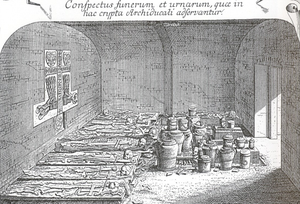 Conspectus funerum et urnarum, quæ in
hac crypta Archiducali asservantur.